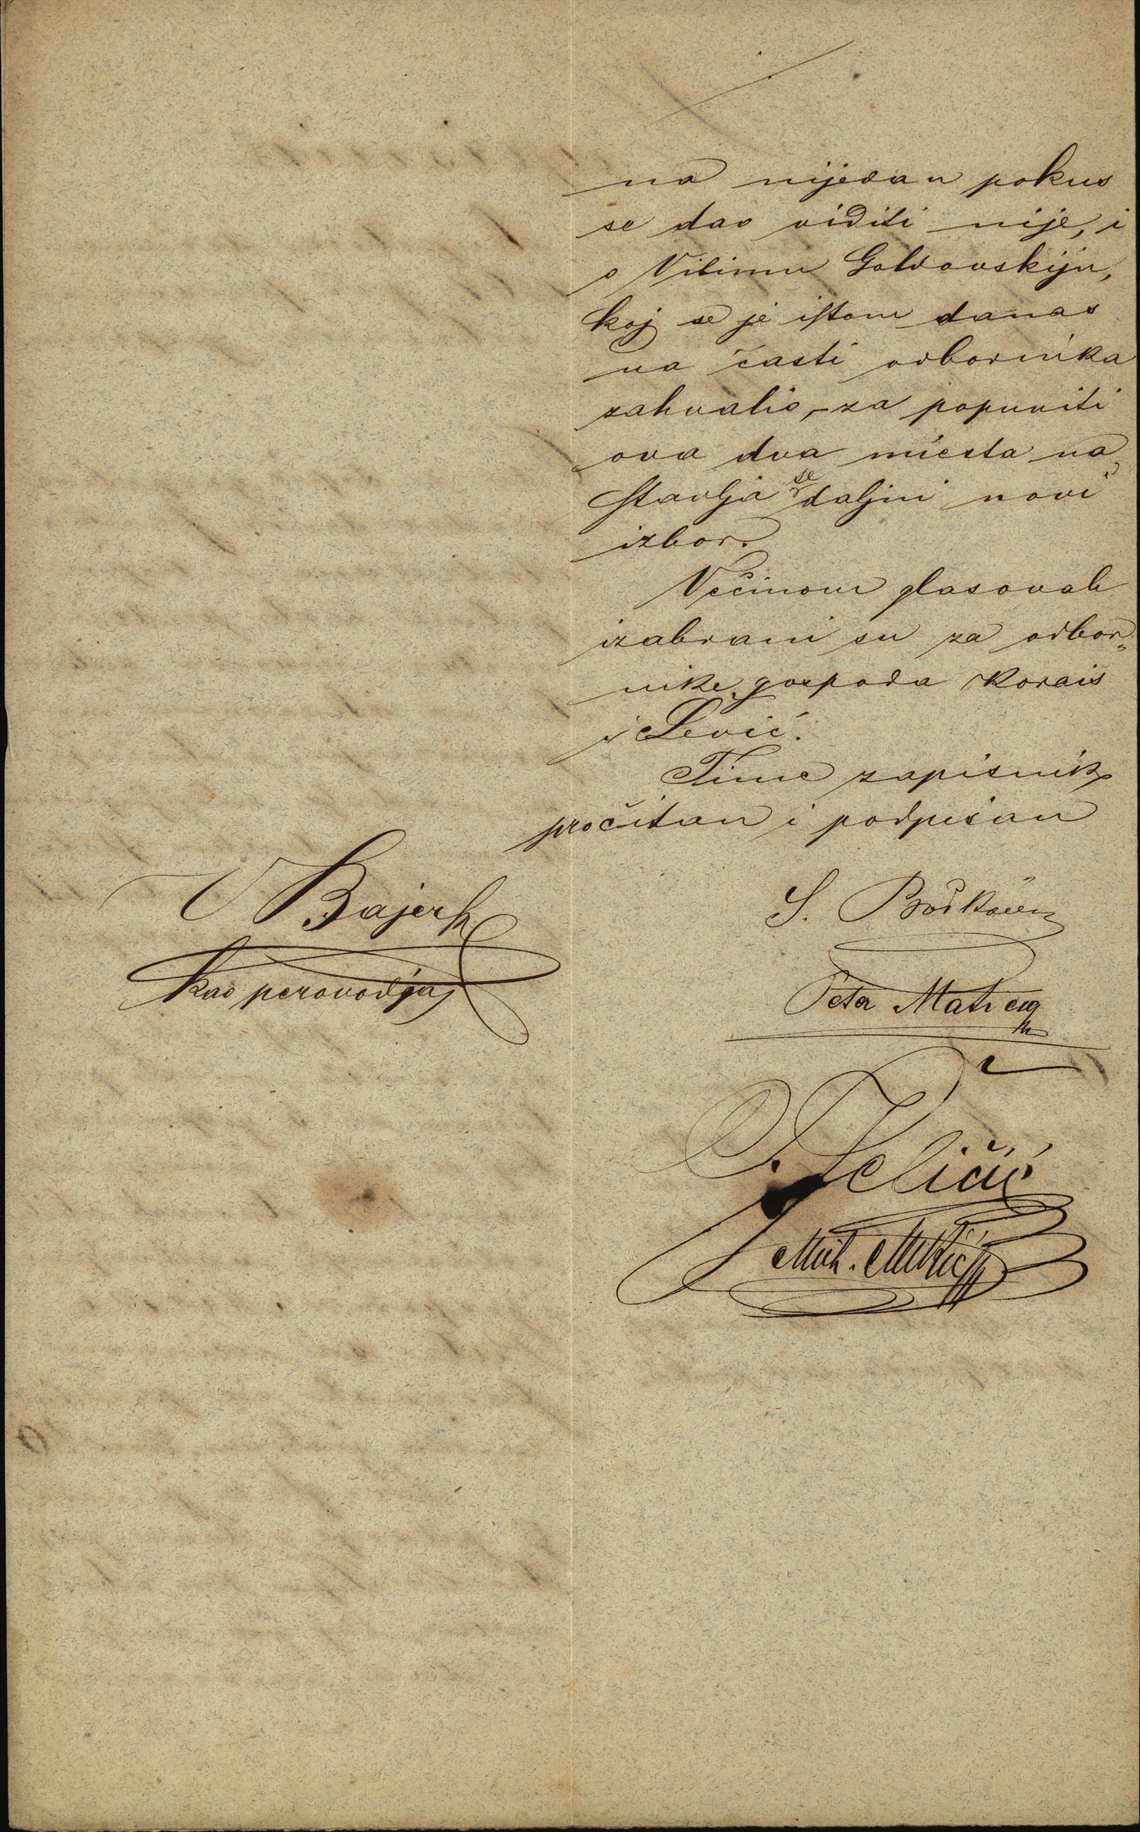 na nijedan pokus
se dao viditi nije, i
o Vilimu Goldovskiju,
koj se je istom danas
na časti odbornika
zahvalio,-za popuniti
ova dva miesta na-
stavlja se daljni novi
izbor.
Većinom glasovah
izabrani su za odbor=
nike gospoda Korais
i Lević.
Time zapisnik
pročitan i podpisan
V Bajerh
kao perovodja
S. Bošković
Petar
J. Jeličić
Mih.